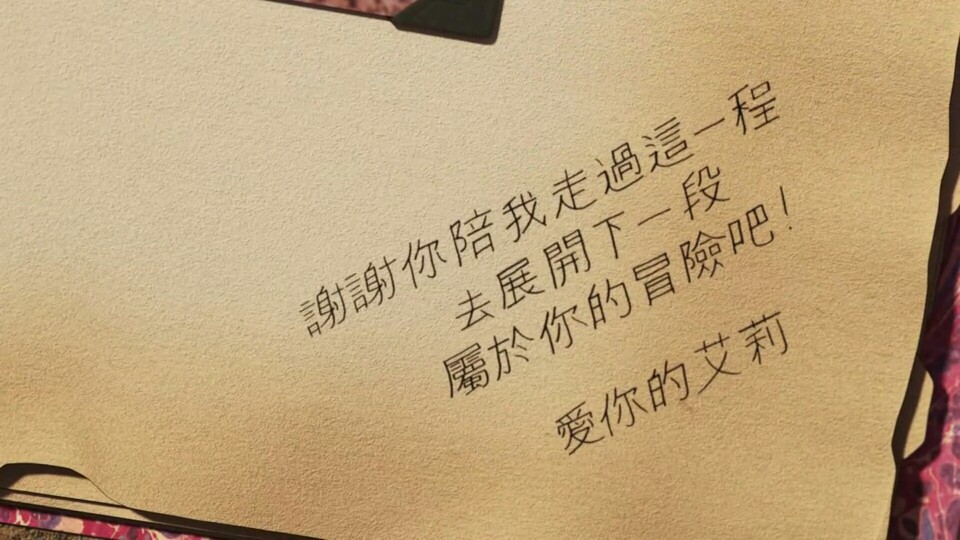 謝謝你陪我走過這一程
去展開下一段
屬於你的冒險吧！
愛你的艾莉